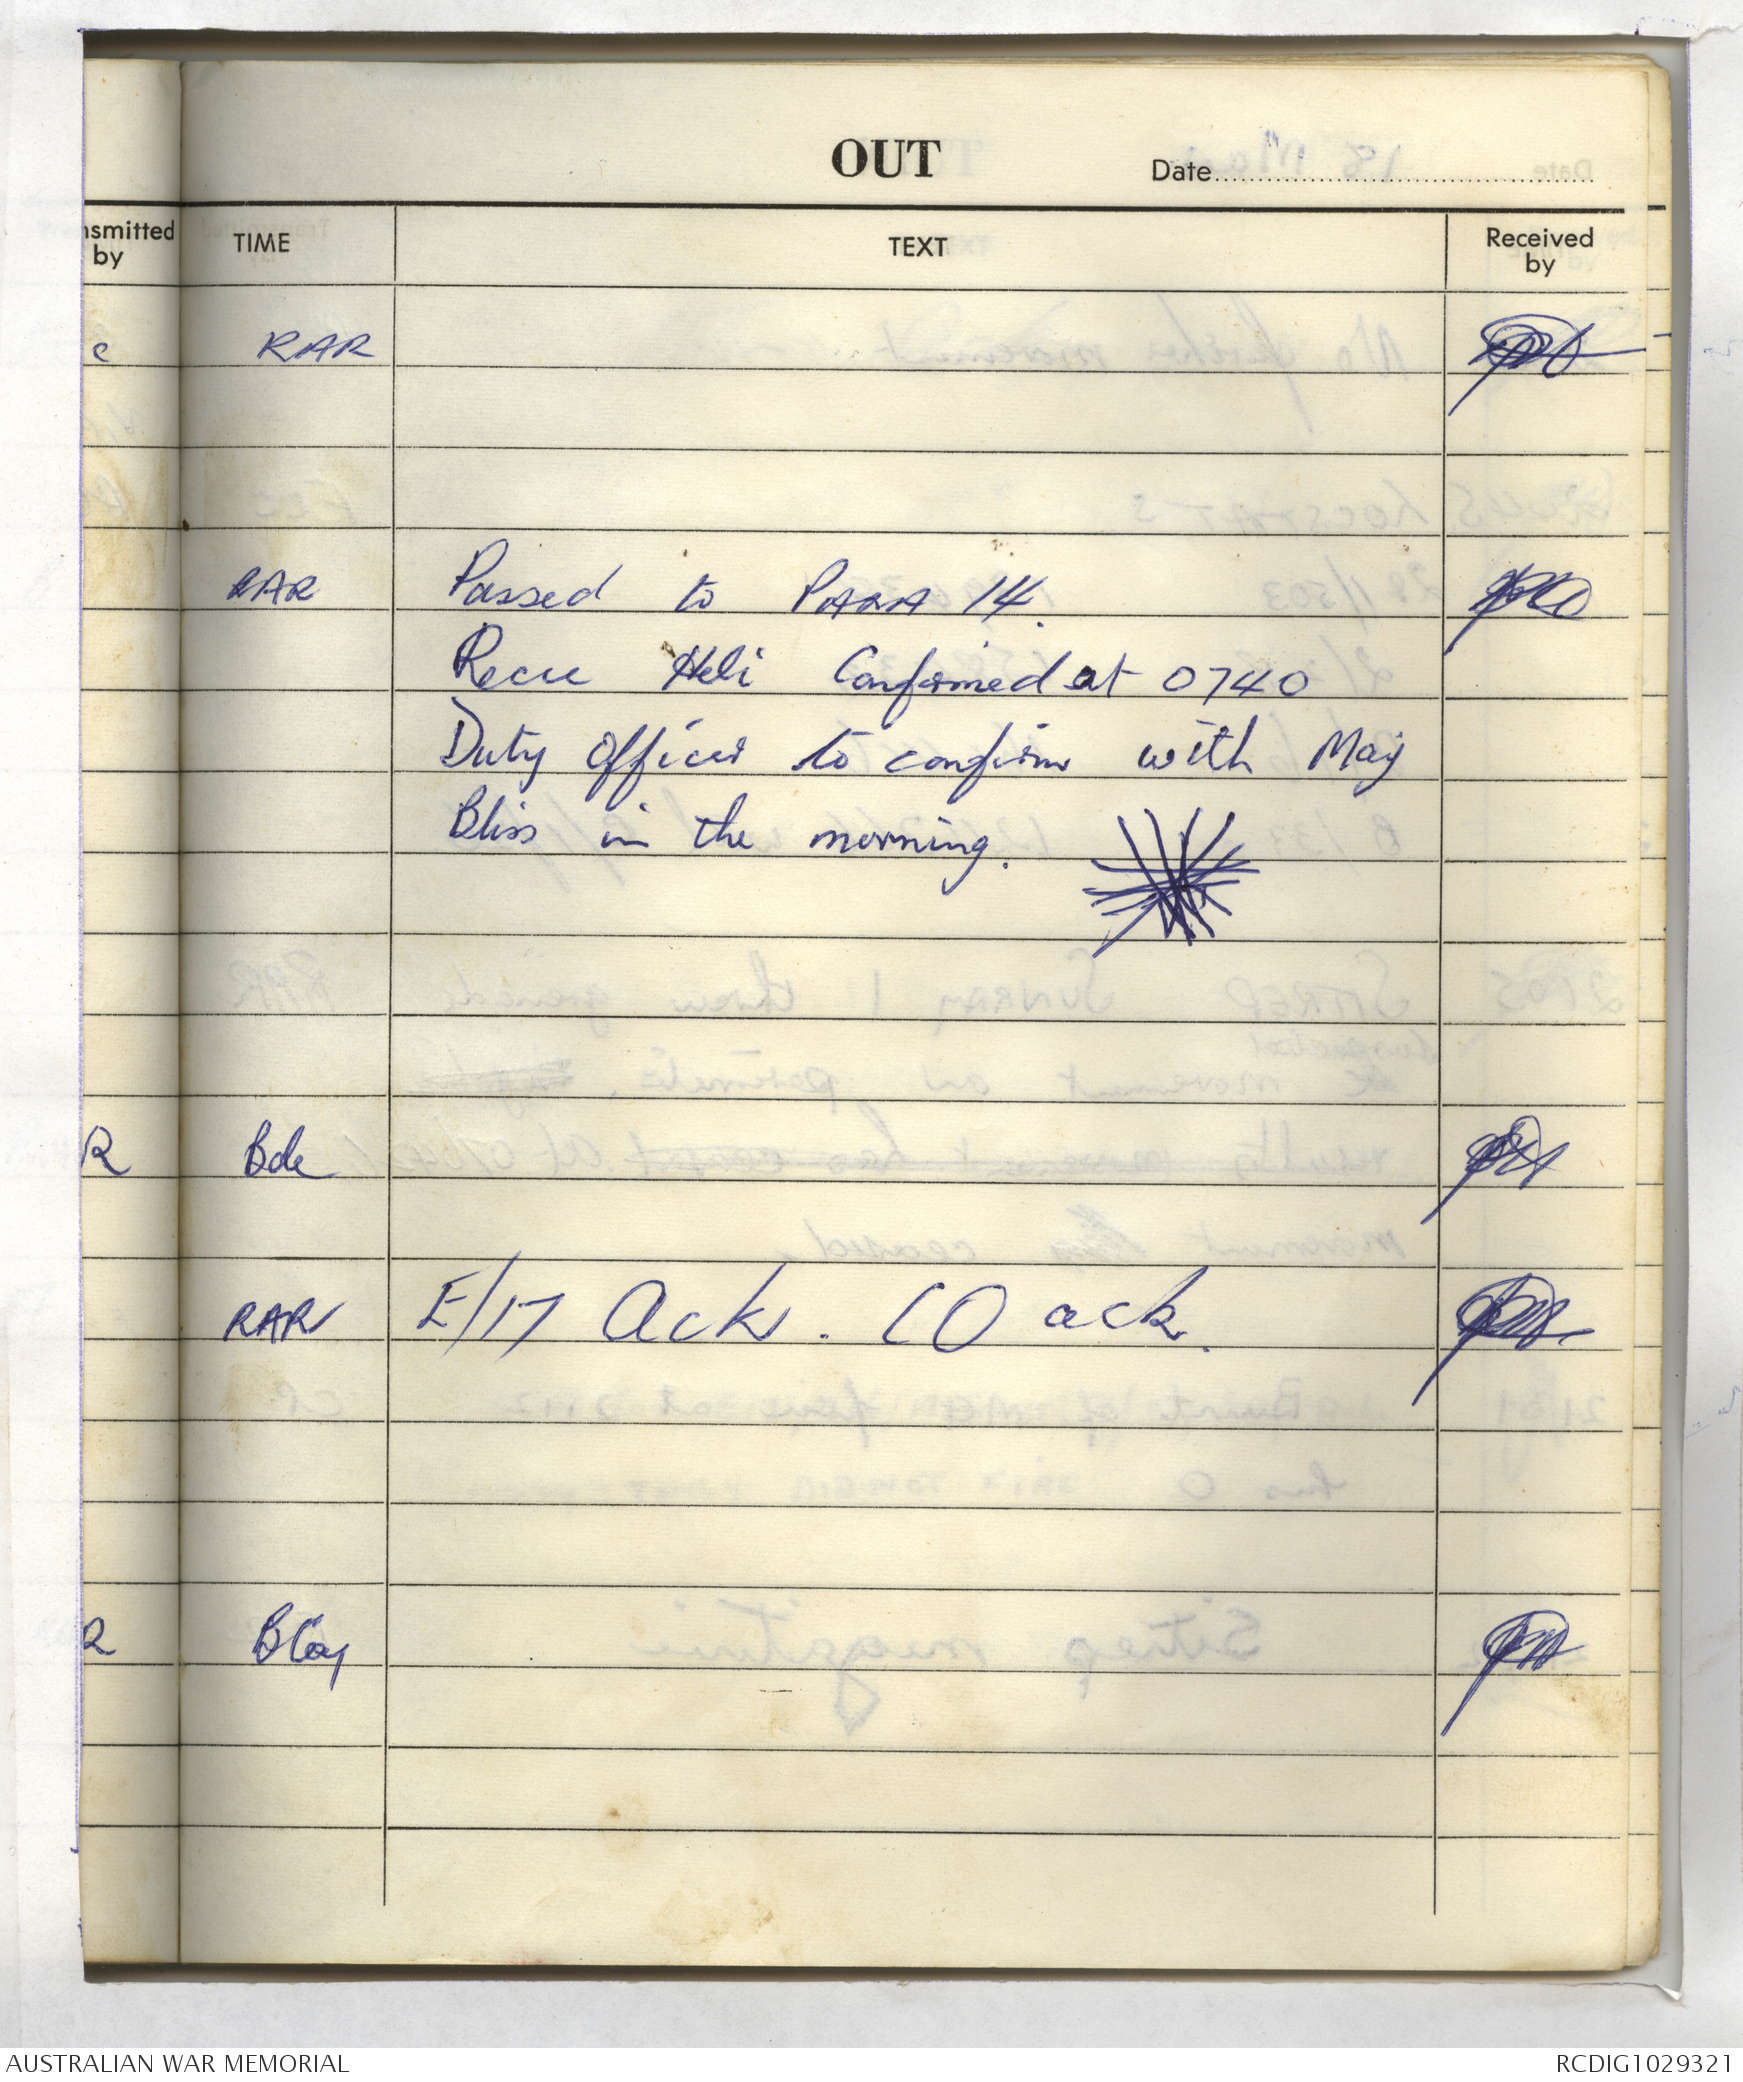 OUT
Date
nsmitted by TIME TEXT Received by
c RAR
RAR Passed to PARA 14.
Recce Heli Confirmed at 0740
Duty Officer to confirm with Maj
Bliss in the morning.
R Bde
RAR E/17 Ack. CO ack.
R BCoy
AUSTRALIAN WAR MEMORIAL RCDIG1029321